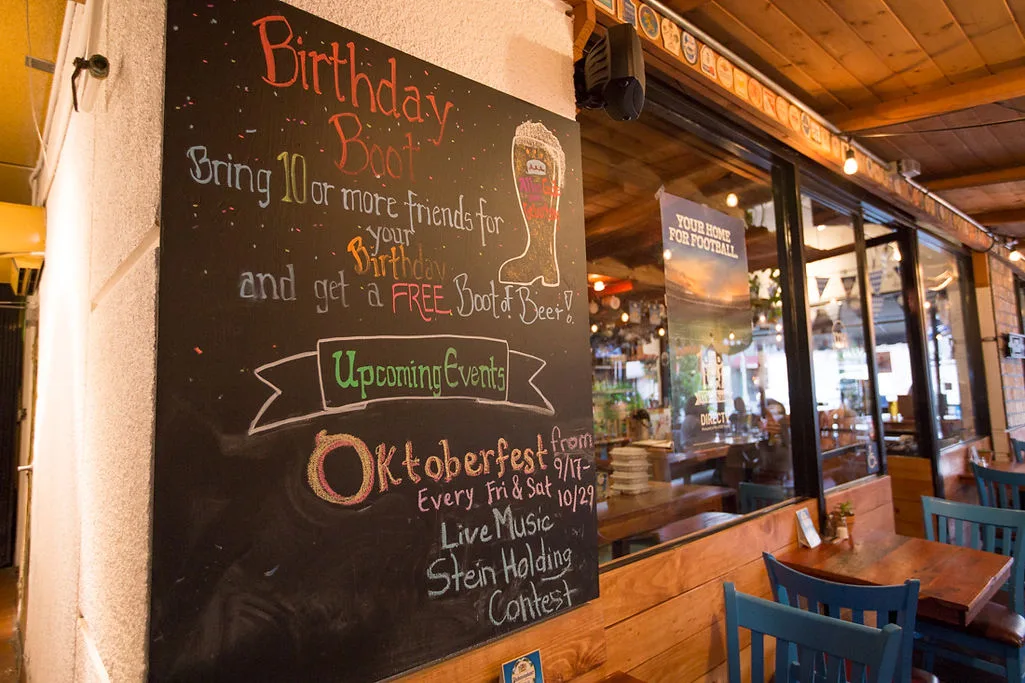 Birthday
Boot
Bring 10 or more friends for
your
Birthday
and get a FREE Boot of Beer!
Upcoming Events
Oktoberfest from
9/17-
Every Fri & Sat 10/29
Live Music
Stein Holding
Contest
YOUR HOME
FOR FOOTBALL.
DIRECTV